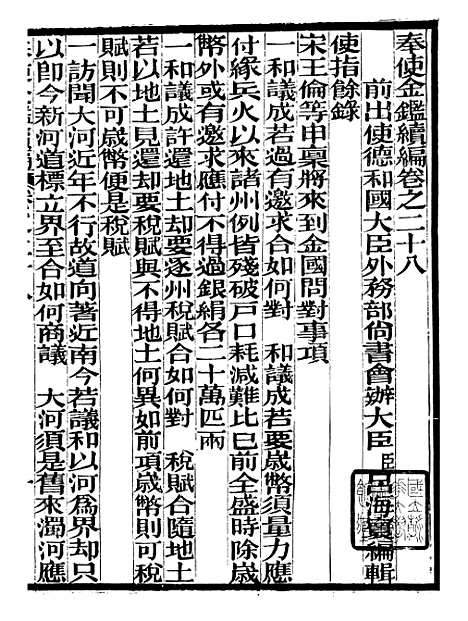 奉使金鑑續編卷之二十八
前出使德和國大臣外務部尙書會辦大臣臣呂海寰編輯
使指餘錄
宋王倫等申稟將來到金國問對事項
一和議成若過有邀求合如何對　和議成若要歲幣須量力應
付緣兵火以來諸州例皆殘破戶口耗減難比已前全盛時除歲
幣外或有邀求應付不得過銀絹各二十萬匹兩
一和議成許還地土却要逐州稅賦合如何對　稅賦合隨地土
若以地土見還却要稅賦與不得地土何異如前項歲幣則可稅
賦則不可歲幣便是稅賦
一訪聞大河近年不行故道向著近南今若議和以河爲界却只
以卽今新河道標立界至合如何商議　大河須是舊來濁河應